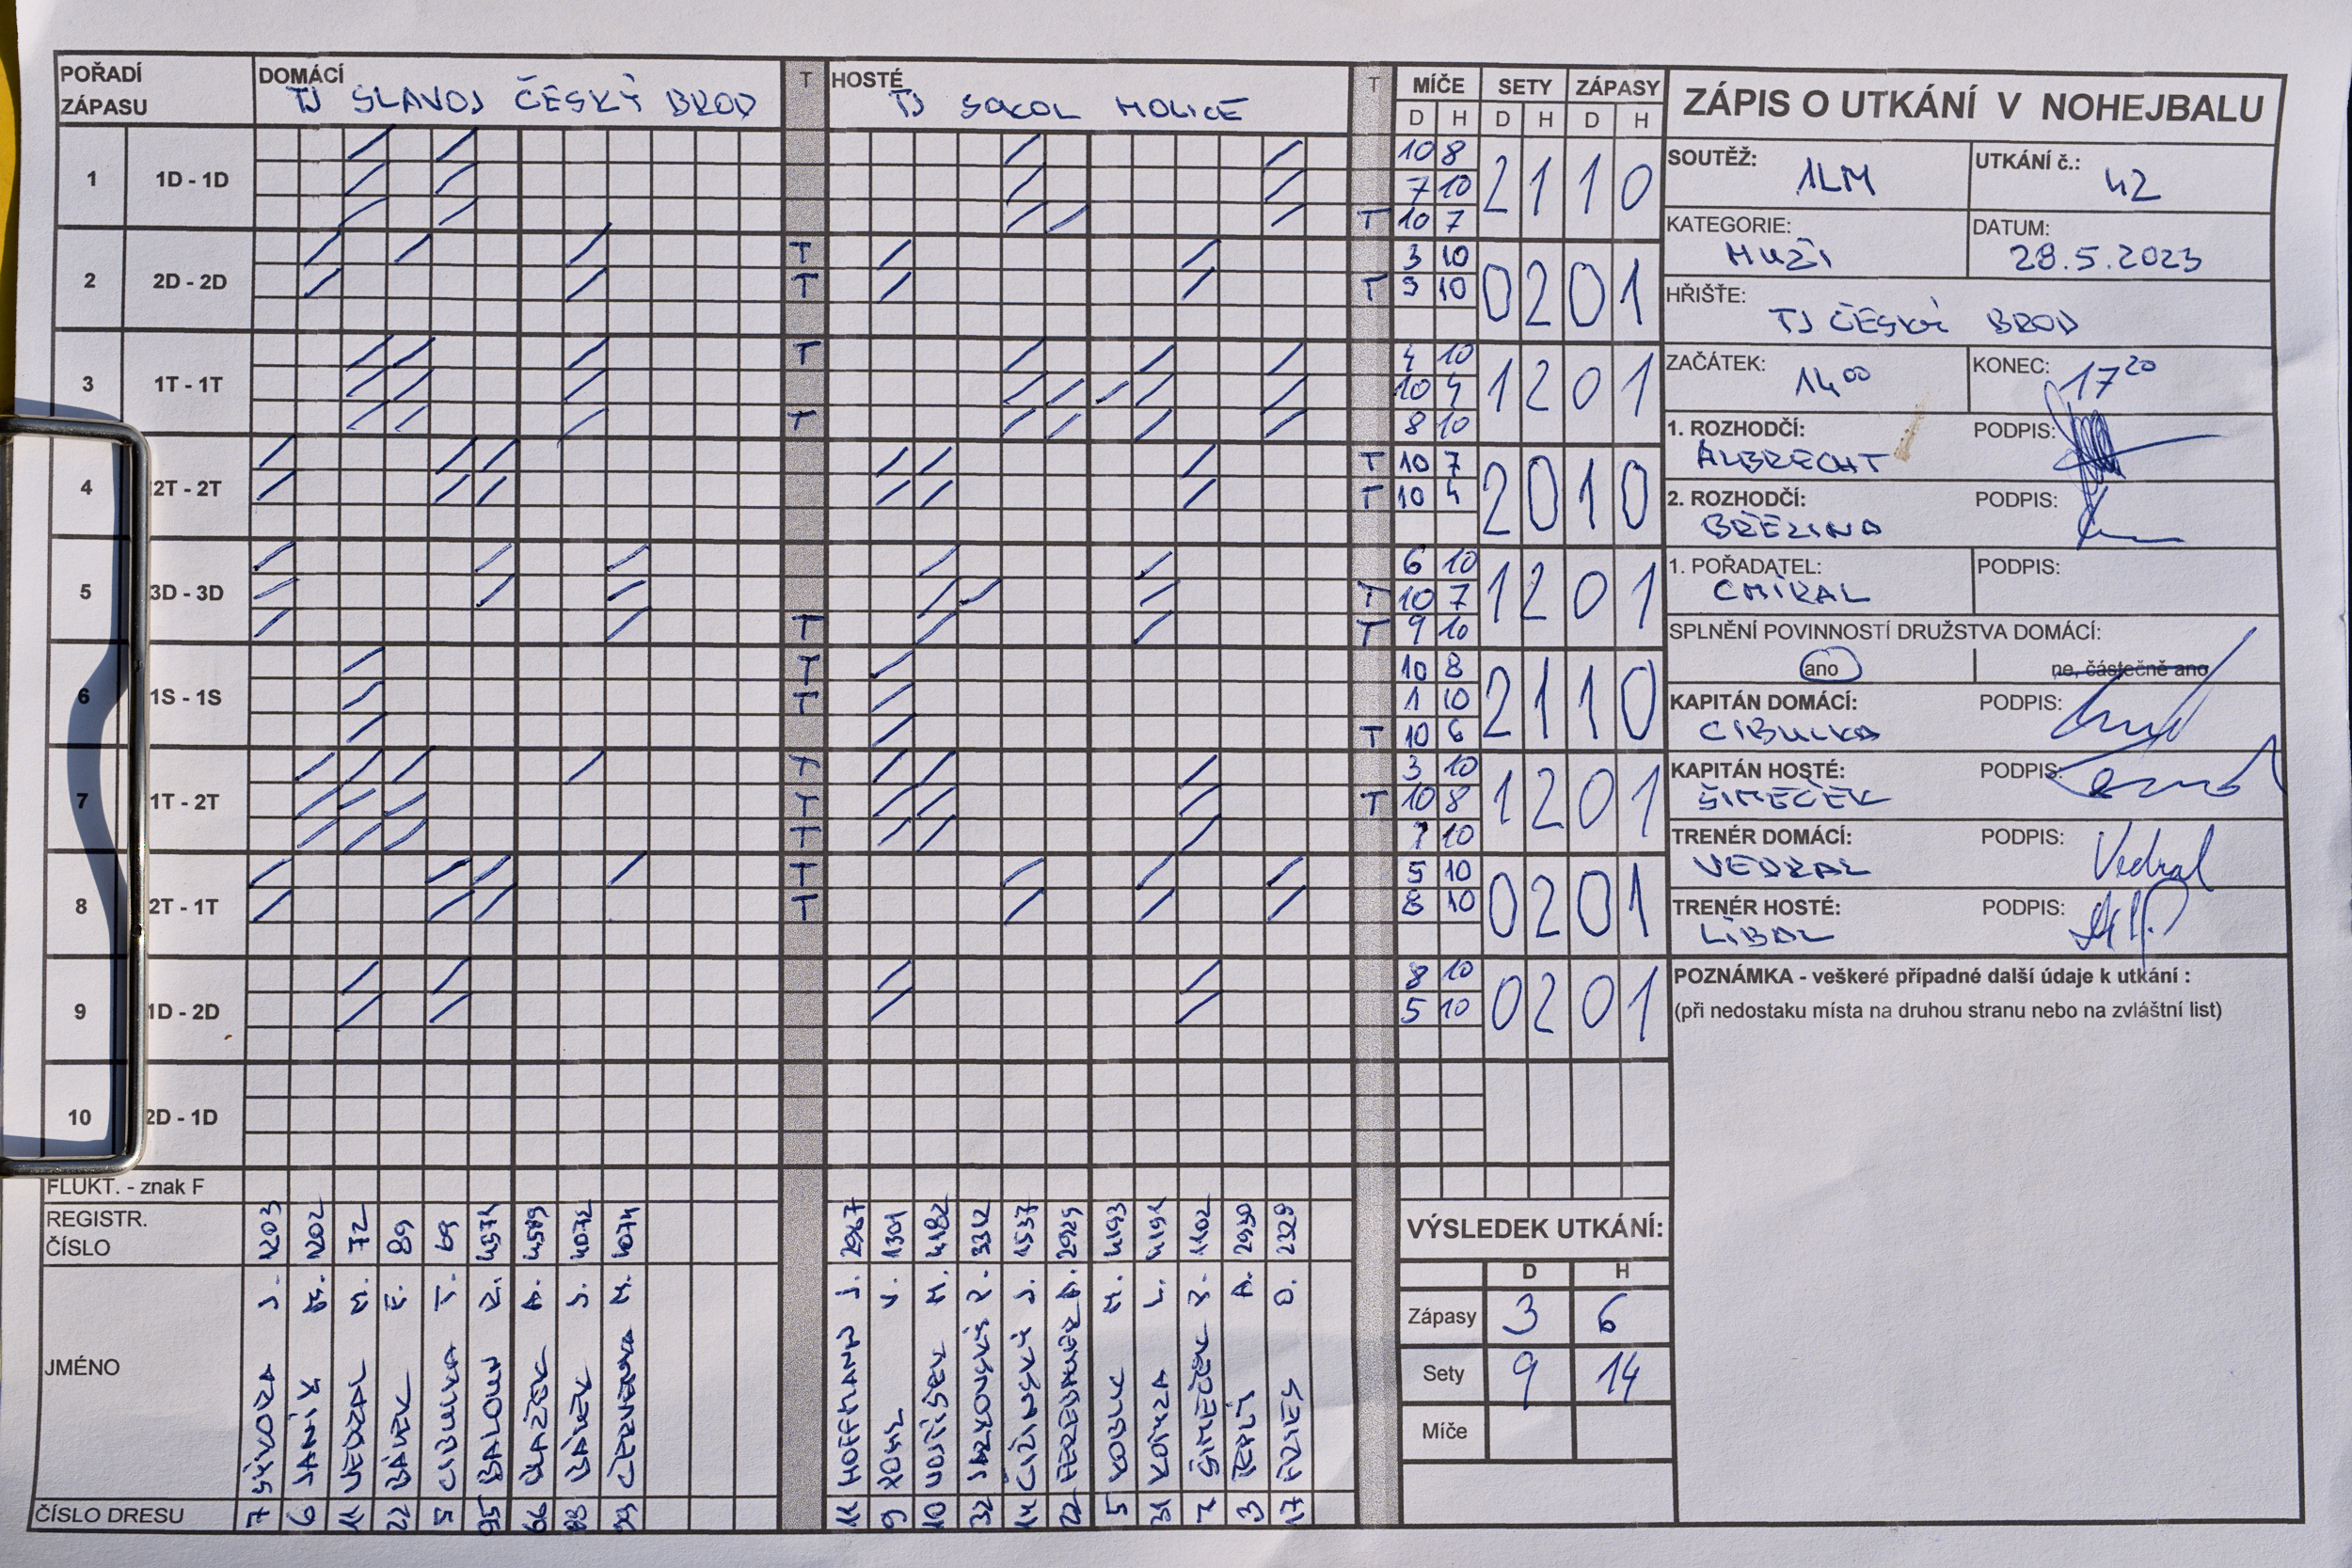 POŘADÍ ZÁPASU
DOMÁCÍ TJ SLAVOJ ČESKÝ BROD
T
HOSTÉ TJ SOKOL HOLICE
T
MÍČE SETY ZÁPASY
D H D H D H
ZÁPIS O UTKÁNÍ V NOHEJBALU
SOUTĚŽ: 1LM
UTKÁNÍ č.: 42
KATEGORIE: MUŽI
DATUM: 28.5.2023
HŘIŠTĚ: TJ ČESKÝ BROD
ZAČÁTEK: 14 00
KONEC: 17 20
1. ROZHODČÍ: ALBRECHT
PODPIS:
2. ROZHODČÍ: BŘEZINA
PODPIS:
1. POŘADATEL: CMÍRAL
PODPIS:
SPLNĚNÍ POVINNOSTÍ DRUŽSTVA DOMÁCÍ:
ano
ne, částečně ano
KAPITÁN DOMÁCÍ: CIBULKA
PODPIS:
KAPITÁN HOSTÉ: ŠIMEČEK
PODPIS:
TRENÉR DOMÁCÍ: VEDRAL
PODPIS: Vedral
TRENÉR HOSTÉ: LIBAL
PODPIS:
POZNÁMKA - veškeré případné další údaje k utkání :
(při nedostaku místa na druhou stranu nebo na zvláštní list)
1 1D - 1D
10 8
7 10
T 10 7
2 1 1 0
2 2D - 2D
T 3 10
T T 9 10
0 2 0 1
3 1T - 1T
T 4 10
10 4
T 8 10
1 2 0 1
4 2T - 2T
T 10 7
T 10 4
2 0 1 0
5 3D - 3D
6 10
T 10 7
T T 9 10
1 2 0 1
6 1S - 1S
T 10 8
T 1 10
T 10 6
2 1 1 0
7 1T - 2T
T 3 10
T T 10 8
T 10
1 2 0 1
8 2T - 1T
T 5 10
T 8 10
0 2 0 1
9 1D - 2D
8 10
5 10
0 2 0 1
10 2D - 1D
FLUKT. - znak F
REGISTR. ČÍSLO
1203 1202 72 89 69 4571 4589 4072 4074
2967 1301 4182 3312 1537 2929 4193 4191 1102 2930 2329
JMÉNO
SÝKORA J.
JANÍK M.
VEDRAL M.
BÁREK
CIBULKA T.
BALOUN
BLAŽEK
BÁREK J.
ČERVENKA M.
HOFFMANN J.
V.
NOSÍŠEK M.
JARKOVSKÝ
ČIŽINSKÝ J.
M.
KOBLIC M.
KOTYZA L.
ŠIMEČEK
TEPLÝ A.
FRIES O.
ČÍSLO DRESU
7 6 11 22 5 95 66 88 99
11 9 10 32 14 22 5 31 2 3 17
VÝSLEDEK UTKÁNÍ:
D H
Zápasy 3 6
Sety 9 14
Míče